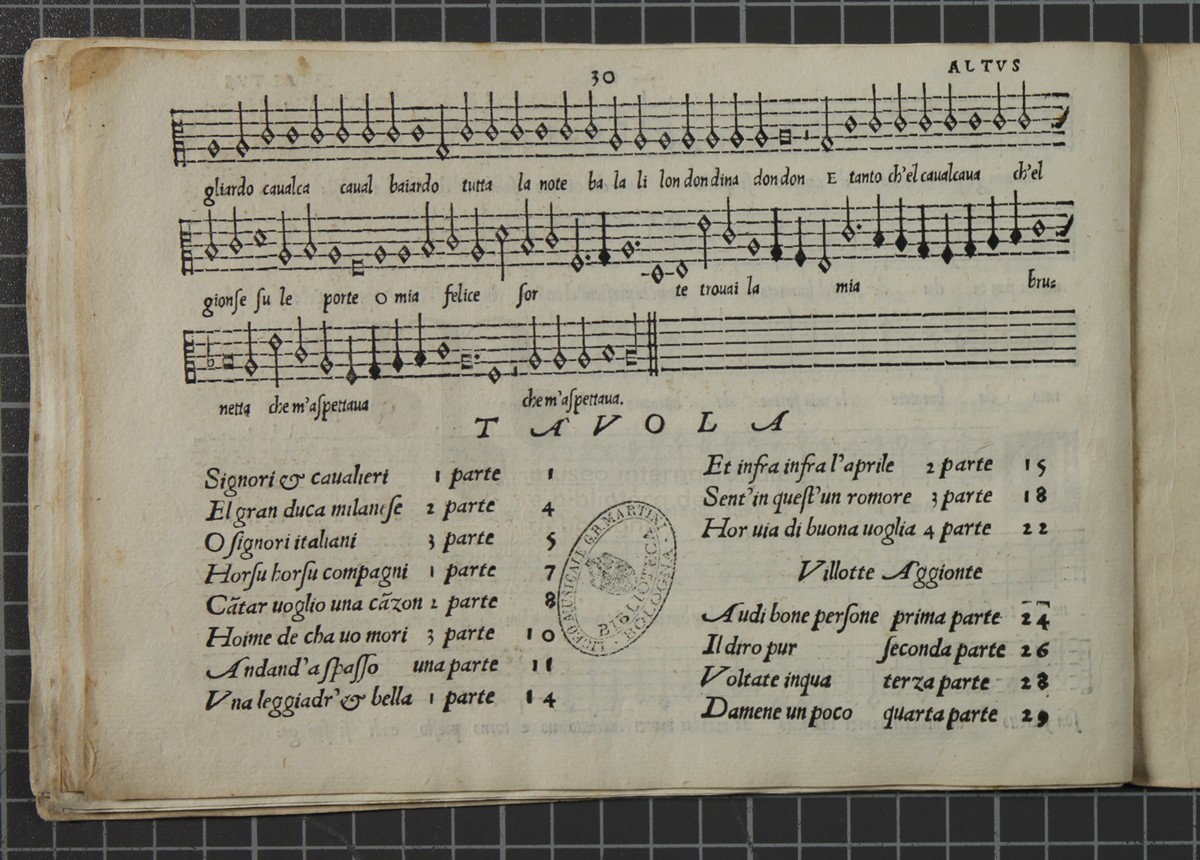 30
ALTVS
gliardo caualca caual baiardo tutta la note ba la li lon don dina don don E tanto ch'el caualcaua ch'el
gionſe ſu le porte O mia felice ſor te trouai la mia bru-
netta che m'aſpettaua che m'aſpettaua.
TAVOLA
Signori & caualieri 1 parte 1
El gran duca milaneſe 2 parte 4
O ſignori italiani 3 parte 5
Horſu horſu compagni 1 parte 7
Cãtar uoglio una cãzon 2 parte 8
Hoime de cha uo mori 3 parte 10
Andand'a ſpaſſo una parte 11
Vna leggiadr'& bella 1 parte 14
Et infra infra l'aprile 2 parte 15
Sent'in queſt'un romore 3 parte 18
Hor uia di buona uoglia 4 parte 22
Villotte Aggionte
Audi bone perſone prima parte 24
Il diro pur ſeconda parte 26
Voltate inqua terza parte 28
Damene un poco quarta parte 29
LICEO MUSICALE G.B. MARTINI
BIBLIOTECA
BOLOGNA